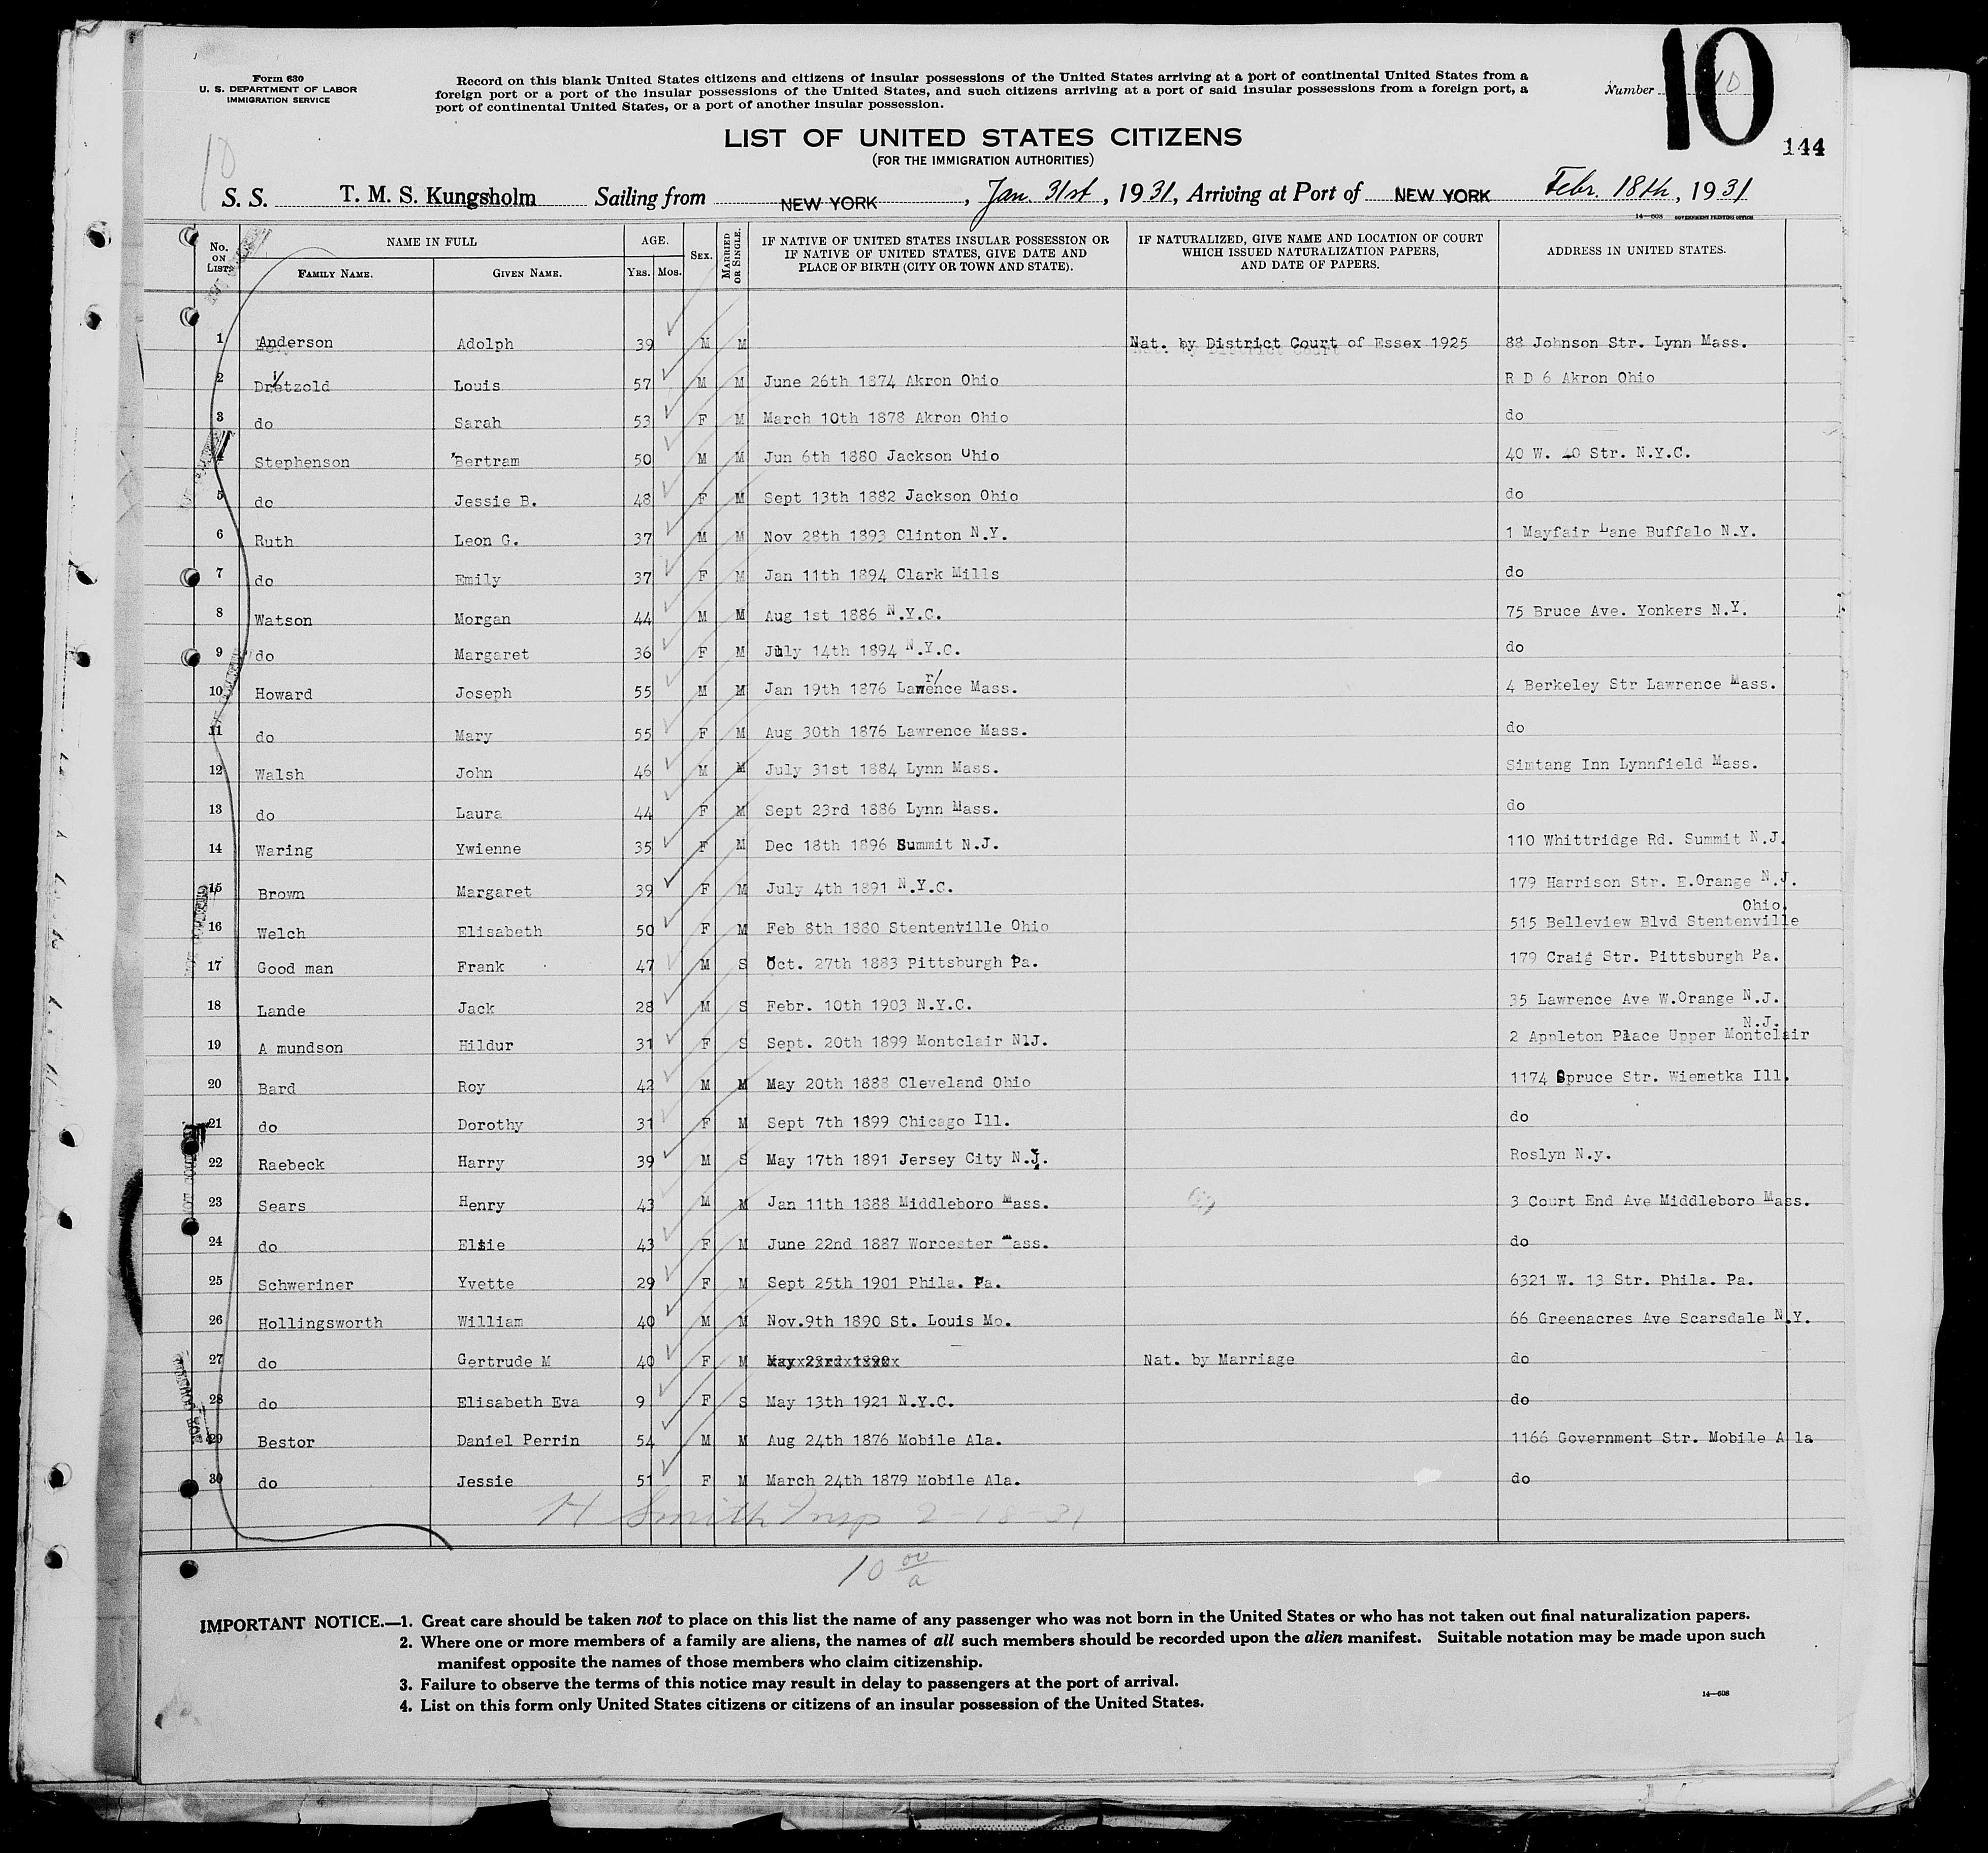 Form 630
U. S. DEPARTMENT OF LABOR
IMMIGRATION SERVICE
Record on this blank United States citizens and citizens of insular possessions of the United States arriving at a port of continental United States from a
foreign port or a port of the insular possessions of the United States, and such citizens arriving at a port of said insular possessions from a foreign port, a
port of continental United States, or a port of another insular possession.
Number 10
10
144
10
LIST OF UNITED STATES CITIZENS
(FOR THE IMMIGRATION AUTHORITIES)
S. S. T. M. S. Kungsholm Sailing from NEW YORK, Jan. 31st, 1931, Arriving at Port of NEW YORK Febr. 18th, 1931
14—608 GOVERNMENT PRINTING OFFICE
No. ON LIST NAME IN FULL FAMILY NAME. GIVEN NAME. AGE. YRS. MOS. SEX. MARRIED OR SINGLE. IF NATIVE OF UNITED STATES INSULAR POSSESSION OR IF NATIVE OF UNITED STATES, GIVE DATE AND PLACE OF BIRTH (CITY OR TOWN AND STATE). IF NATURALIZED, GIVE NAME AND LOCATION OF COURT WHICH ISSUED NATURALIZATION PAPERS, AND DATE OF PAPERS. ADDRESS IN UNITED STATES.
1 Anderson Adolph 39 M M Nat. by District Court of Essex 1925 88 Johnson Str. Lynn Mass.
2 Dretzold Louis 57 M M June 26th 1874 Akron Ohio R D 6 Akron Ohio
3 do Sarah 53 F M March 10th 1878 Akron Ohio do
4 Stephenson Bertram 50 M M Jun 6th 1880 Jackson Ohio 40 W. 40 Str. N.Y.C.
5 do Jessie B. 48 F M Sept 13th 1882 Jackson Ohio do
6 Ruth Leon G. 37 M M Nov 28th 1893 Clinton N.Y. 1 Mayfair Lane Buffalo N.Y.
7 do Emily 37 F M Jan 11th 1894 Clark Mills do
8 Watson Morgan 44 M M Aug 1st 1886 N.Y.C. 75 Bruce Ave. Yonkers N.Y.
9 do Margaret 36 F M July 14th 1894 N.Y.C. do
10 Howard Joseph 55 M M Jan 19th 1876 Lawrence Mass. 4 Berkeley Str Lawrence Mass.
11 do Mary 55 F M Aug 30th 1876 Lawrence Mass. do
12 Walsh John 46 M M July 31st 1884 Lynn Mass. Simtang Inn Lynnfield Mass.
13 do Laura 44 F M Sept 23rd 1886 Lynn Mass. do
14 Waring Ywienne 35 F M Dec 18th 1896 Summit N.J. 110 Whittridge Rd. Summit N.J.
15 Brown Margaret 39 F M July 4th 1891 N.Y.C. 179 Harrison Str. E.Orange N.J.
16 Welch Elisabeth 50 F M Feb 8th 1880 Stentenville Ohio 515 Belleview Blvd Stentenville Ohio.
17 Good man Frank 47 M S Oct. 27th 1883 Pittsburgh Pa. 179 Craig Str. Pittsburgh Pa.
18 Lande Jack 28 M S Febr. 10th 1903 N.Y.C. 35 Lawrence Ave W.Orange N.J.
19 A mundson Hildur 31 F S Sept. 20th 1899 Montclair NlJ. 2 Appleton Place Upper Montclair N.J.
20 Bard Roy 42 M M May 20th 1888 Cleveland Ohio 1174 Spruce Str. Wiemetka Ill.
21 do Dorothy 31 F M Sept 7th 1899 Chicago Ill. do
22 Raebeck Harry 39 M S May 17th 1891 Jersey City N.J. Roslyn N.y.
23 Sears Henry 43 M M Jan 11th 1888 Middleboro Mass. 3 Court End Ave Middleboro Mass.
24 do Elsie 43 F M June 22nd 1887 Worcester Mass. do
25 Schweriner Yvette 29 F M Sept 25th 1901 Phila. Pa. 6321 W. 13 Str. Phila. Pa.
26 Hollingsworth William 40 M M Nov.9th 1890 St. Louis Mo. 66 Greenacres Ave Scarsdale N.Y.
27 do Gertrude M 40 F M May 23rd 1890 Nat. by Marriage do
28 do Elisabeth Eva 9 F S May 13th 1921 N.Y.C. do
29 Bestor Daniel Perrin 54 M M Aug 24th 1876 Mobile Ala. 1166 Government Str. Mobile A la
30 do Jessie 51 F M March 24th 1879 Mobile Ala. do
H Smith Insp 2-18-31
10
IMPORTANT NOTICE.—1. Great care should be taken not to place on this list the name of any passenger who was not born in the United States or who has not taken out final naturalization papers.
2. Where one or more members of a family are aliens, the names of all such members should be recorded upon the alien manifest. Suitable notation may be made upon such
manifest opposite the names of those members who claim citizenship.
3. Failure to observe the terms of this notice may result in delay to passengers at the port of arrival.
4. List on this form only United States citizens or citizens of an insular possession of the United States.
14—608